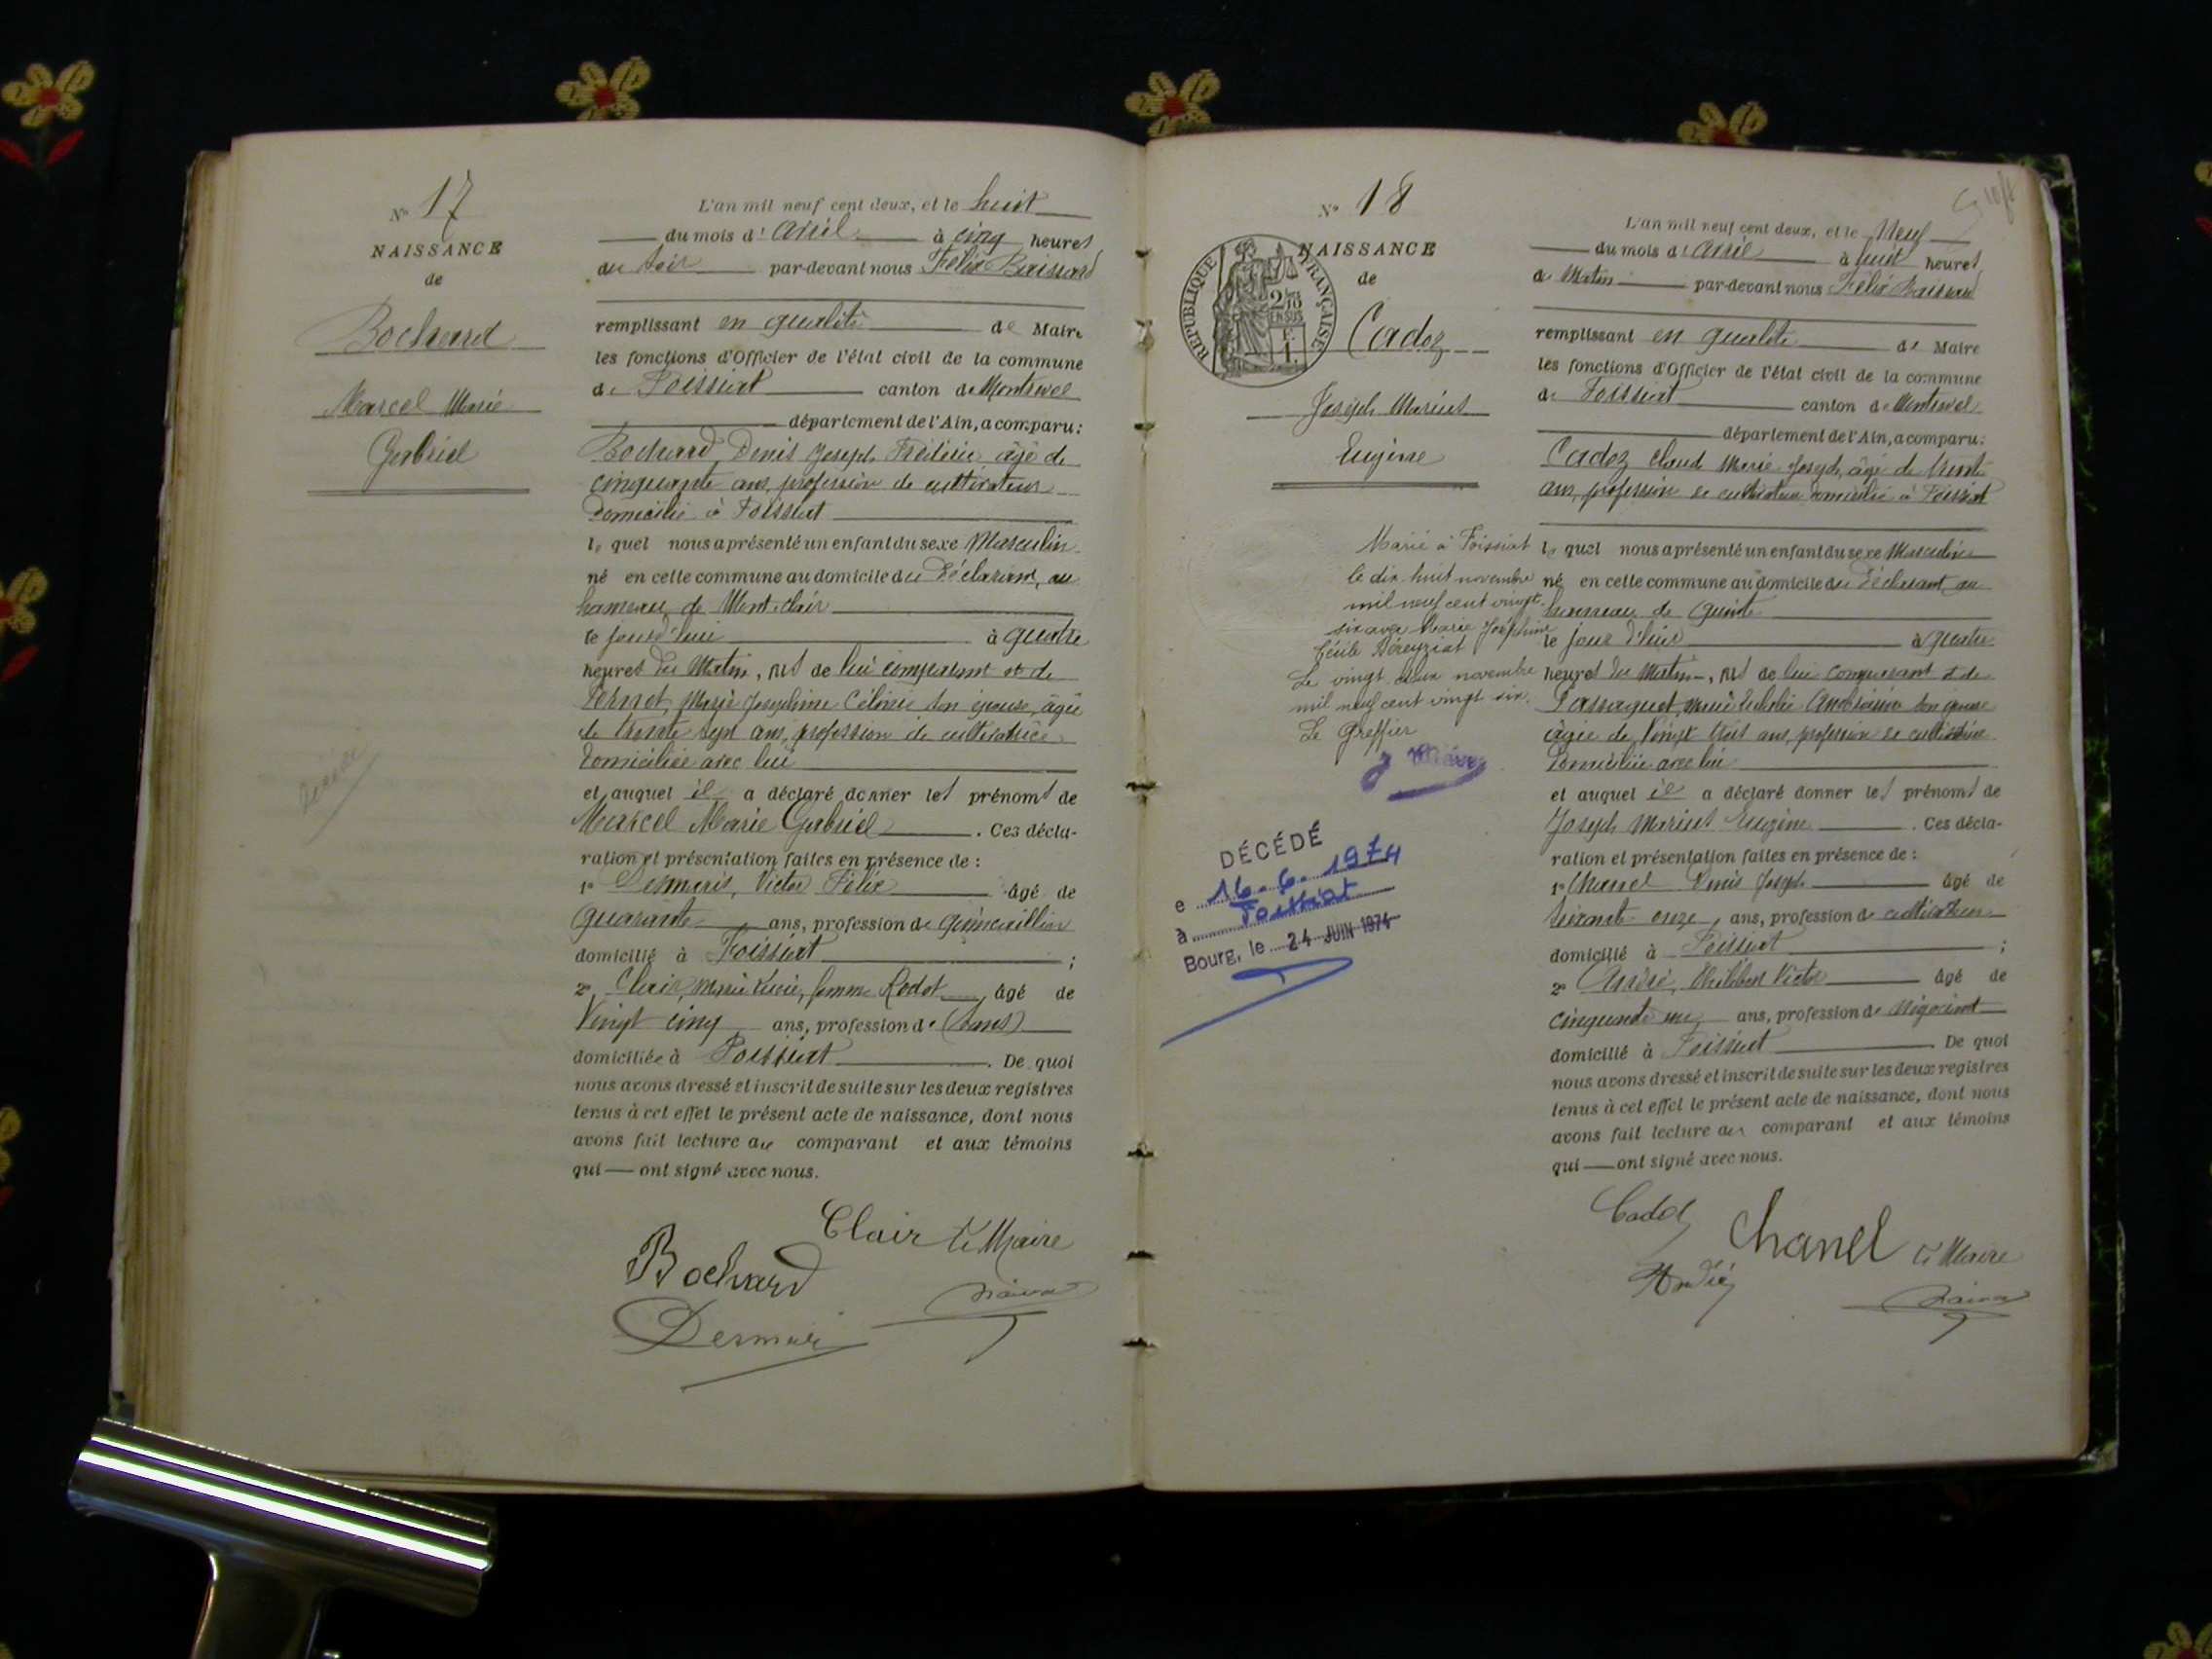 Nº 17
NAISSANCE
de
Bochard
Marcel Marie
Gabriel
L'an mil neuf cent deux, et le huit
du mois d'avril à cinq heures
du soir par-devant nous Félix
remplissant en qualité de Maire
les fonctions d'Officier de l'état civil de la commune
de Foissiat canton de Montrevel
département de l'Ain, a comparu :
Bochard, Denis Joseph Frédéric âgé de
cinquante ans, profession de cultivateur
domicilié à Foissiat
le quel nous a présenté un enfant du sexe Masculin
né en cette commune au domicile du déclarant, au
hameau de Montclair
le jourd'hui à quatre
heures du Matin, fils de lui comparant et de
Marie Joséphine son épouse, âgée
de trente sept ans, profession de cultivatrice
domiciliée avec lui
et auquel il a déclaré donner les prénoms de
Marcel Marie Gabriel . Ces décla-
ration et présentation faites en présence de :
1º Desmaris, Victor Félix âgé de
quarante ans, profession de quincaillier
domicilié à Foissiat ;
2º Clair, Marie femme Rodot âgé de
Vingt cinq ans, profession de (sans)
domiciliée à Foissiat . De quoi
nous avons dressé et inscrit de suite sur les deux registres
tenus à cet effet le présent acte de naissance, dont nous
avons fait lecture au comparant et aux témoins
qui ont signé avec nous.
Clair Le Maire
Bochard
Desmaris
Nº 18
NAISSANCE
de
RÉPUBLIQUE FRANÇAISE
2/10
EN SUS
Cadoz
Joseph Marius
Eugène
Marié à Foissiat
le dix huit novembre
mil neuf cent vingt
six avec Marie Joséphine
Cécile Déreyziat
Le vingt deux novembre
mil neuf cent vingt six.
Le Greffier
DÉCÉDÉ
e 16. 6. 1974
à Foissiat
Bourg, le 24 JUIN 1974
L'an mil neuf cent deux, et le Neuf
du mois d'avril à huit heures
du Matin par-devant nous Félix
remplissant en qualité de Maire
les fonctions d'Officier de l'état civil de la commune
de Foissiat canton de Montrevel
département de l'Ain, a comparu :
Cadoz Claude Marie Joseph, âgé de trente
ans, profession de cultivateur domicilié à Foissiat
le quel nous a présenté un enfant du sexe Masculin
né en cette commune au domicile du déclarant, au
hameau de
le jour d'hui à quatre
heures du Matin, fils de lui comparant et de
son épouse
âgée de Vingt trois ans, profession de cultivatrice
domiciliée avec lui
et auquel il a déclaré donner les prénoms de
Joseph Marius Eugène . Ces décla-
ration et présentation faites en présence de :
1º Chanel Denis Joseph âgé de
soixante onze, ans, profession de cultivateur
domicilié à Foissiat ;
2º André, Philibert Victor âgé de
cinquante ans, profession de négociant
domicilié à Foissiat De quoi
nous avons dressé et inscrit de suite sur les deux registres
tenus à cet effet le présent acte de naissance, dont nous
avons fait lecture au comparant et aux témoins
qui ont signé avec nous.
Cadoz Chanel Le Maire
André